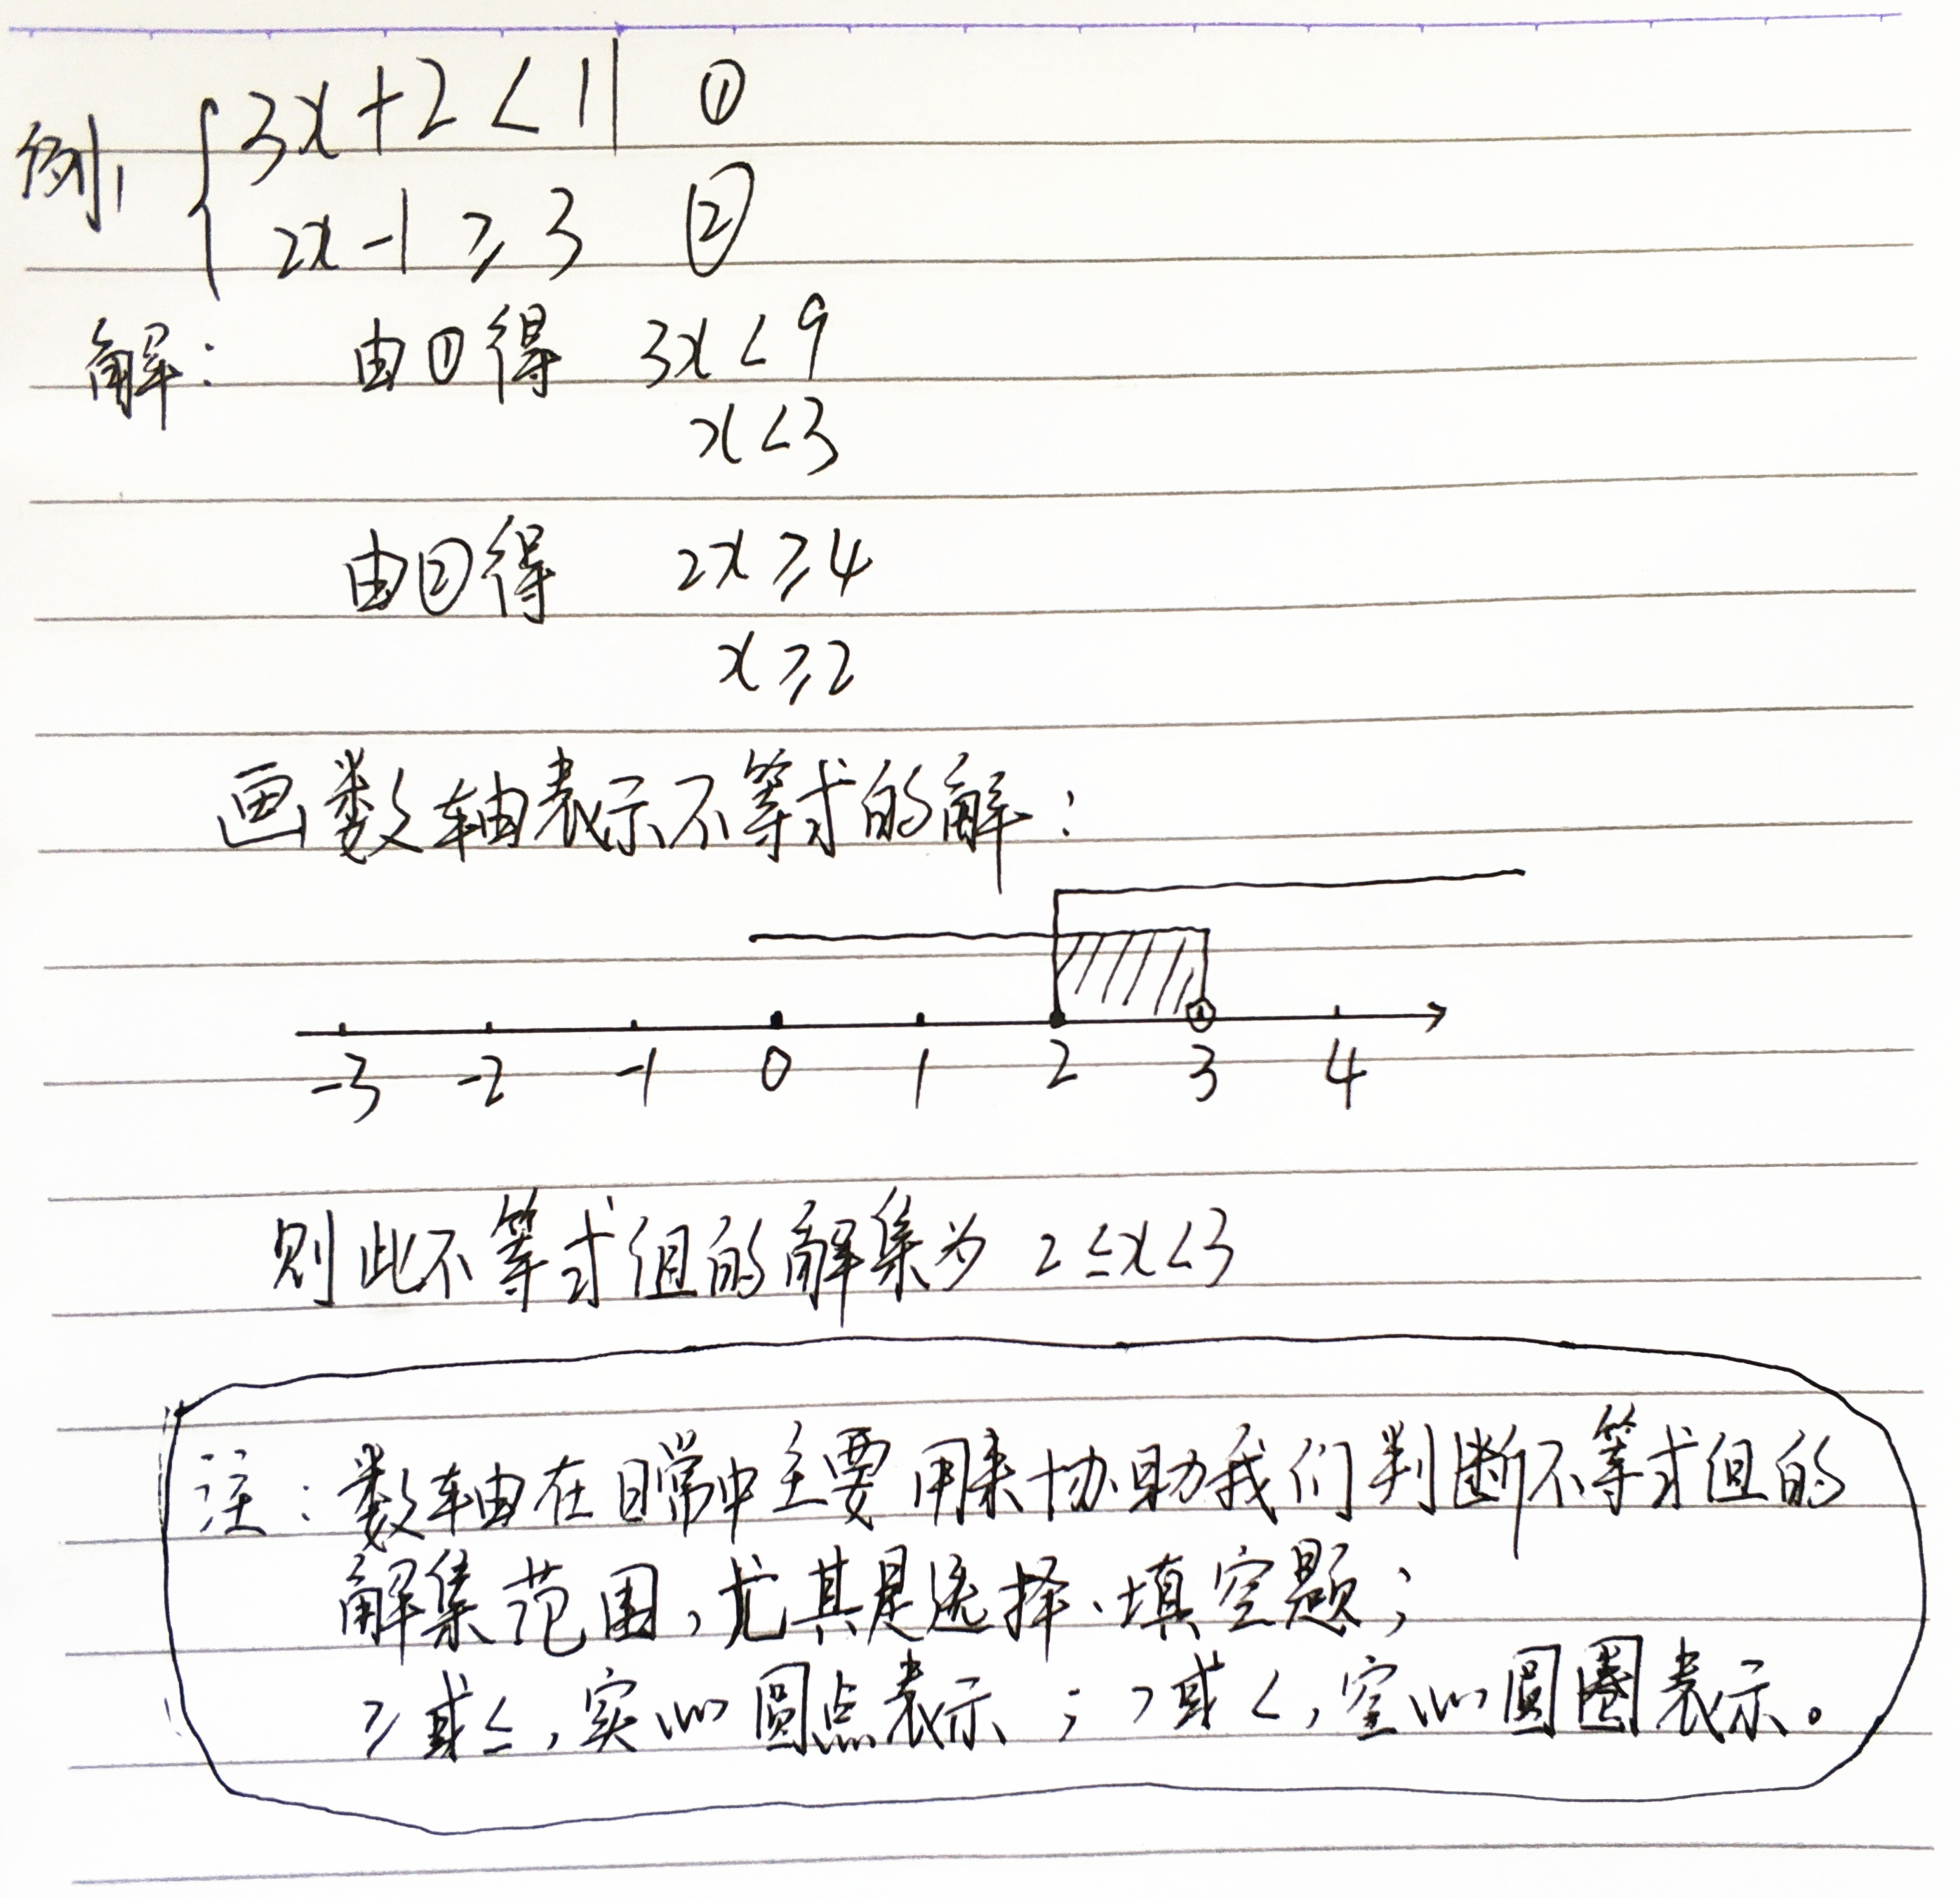 例1 { 3x+2<11 ①
2x-1≥3 ②
解: 由①得 3x<9
x<3
由②得 2x≥4
x≥2
画数轴表示不等式的解:
-3 -2 -1 0 1 2 3 4
则此不等式组的解集为 2≤x<3
注:数轴在日常中主要用来协助我们判断不等式组的
解集范围,尤其是选择、填空题;
≥或≤,实心圆点表示;>或<,空心圆圈表示。